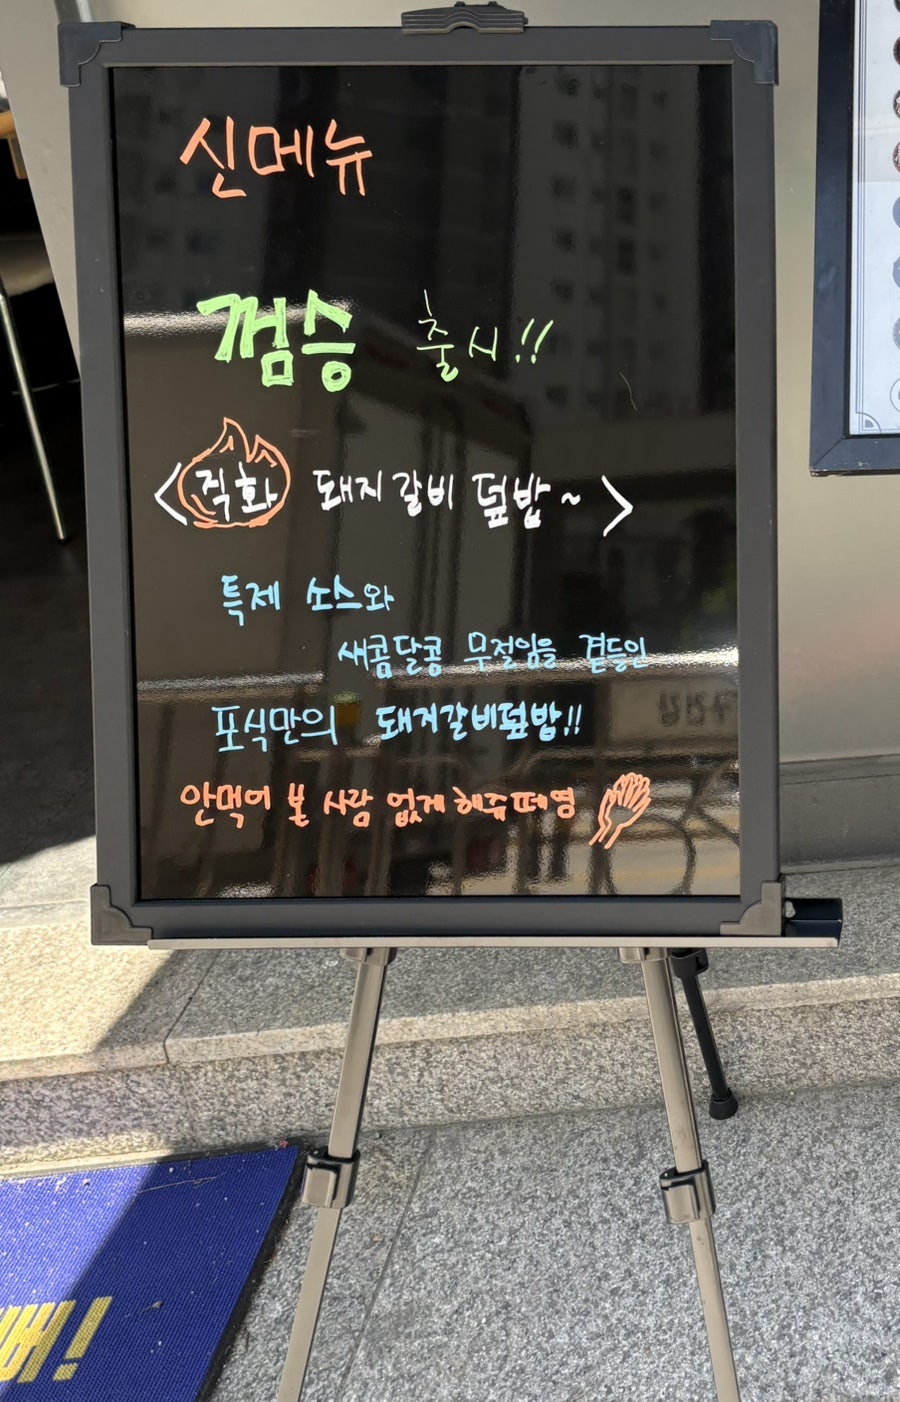 신메뉴
껌승 출시!!
<직화 돼지갈비 덮밥~>
특제 소스와
새콤달콤 무절임을 곁들인
포식만의 돼지갈비덮밥!!
안먹어 본 사람 없게 해주떼염